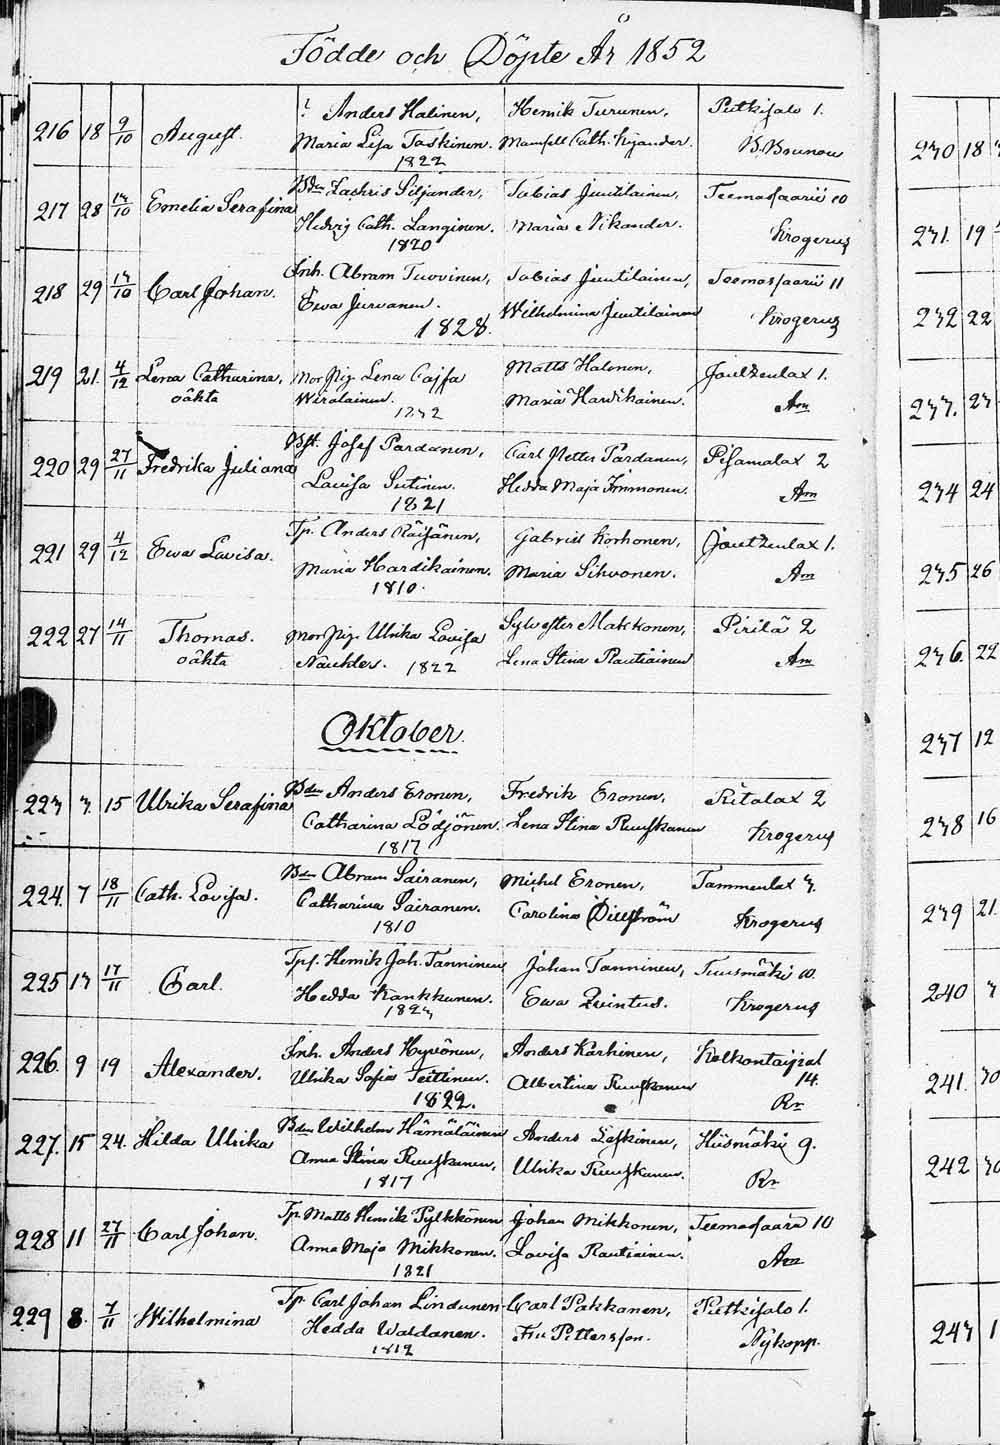 Födde och Döpte År 1852
216 18 9/10 August. ? Anders Halinen, Henrik Turunen, Putkisalo 1.
Maria Lisa Taskinen. Mamsell Cath. Kyander. B. Brunou
1822
217 28 13/10 Emelia Serafina Bdn Zachris Siljander, Tobias Juutilainen, Teemassaarii 10
Hedvig Cath. Langinen. Maria Nikander. Krogerus
1820
218 29 13/10 Carl Johan. Inh. Abram Tuovinen, Tobias Juutilainen, Teemassaarii 11
Ewa Jurvanen. Wilhelmina Juutilainen Krogerus
1828.
219 21. 4/12 Lena Catharina, Mor Pig. Lena Cajsa Matts Halonen, Joutzenlax 1.
oäkta Wirolainen. Maria Hardikainen. Am
1832
220 29 27/11 Fredrika Juliana Bst. Josef Pardanen, Carl Petter Pardanen, Pisamalax 2
Lovisa Sutinen. Hedda Maja Immonen. Am
1821
221 29 4/12 Ewa Lovisa. Tp. Anders Räisänen, Gabriel Korhonen, Joutzenlax 1.
Maria Hardikainen. Maria Sihvonen. Am
1810.
222 27 14/11 Thomas. Mor Pig. Ulrika Lovisa Sylvester Makkonen, Pirilä 2
oäkta Naukler. 1822 Lena Stina Rautiainen Am
Oktober.
223 3. 15 Ulrika Serafina Bdn Anders Eronen, Fredrik Eronen, Sitalax 2
Catharina Lödjönen. Lena Stina Ruuskanen Krogerus
1817
224. 7 18/11 Cath. Lovisa. Bdn Abram Sairanen, Michel Eronen, Tammenlax 3.
Catharina Sairanen. Carolina Dillström Krogerus
1810
225 13 17/11 Carl. Tpf. Henrik Joh. Tanninen, Johan Tanninen, Tuusmäki 10.
Hedda Kankkunen. Ewa Qvintus. Krogerus
1823
226. 9 19 Alexander. Inh. Anders Hyvönen, Anders Karhinen, Kolkontaipal
Ulrika Sofia Teittinen. Albertina Ruuskanen 14.
1822. Rr
227. 15 24. Hilda Ulrika Bdn Wilhelm Hämäläinen Anders Laskinen, Hiismäki 9.
Anna Stina Ruuskanen, Ulrika Ruuskanen. Rr
1817
228 11 27/11 Carl Johan. Tp. Matts Henrik Pylkkönen Johan Mikkonen, Teemassaarii 10
Anna Maja Mikkonen. Lovisa Rautiainen. Am
1821
229 8. 7/11 Wilhelmina Tp. Carl Johan Lindunen Carl Pakkanen, Putkisalo 1.
Hedda Waldanen. Fru Pettersson. Nykopp.
1812
230 18
231. 19
232 22
233. 23
234 24
235 26
236. 22
237 12
238 16
239 21.
240 3
241. 30
242 30
243 1